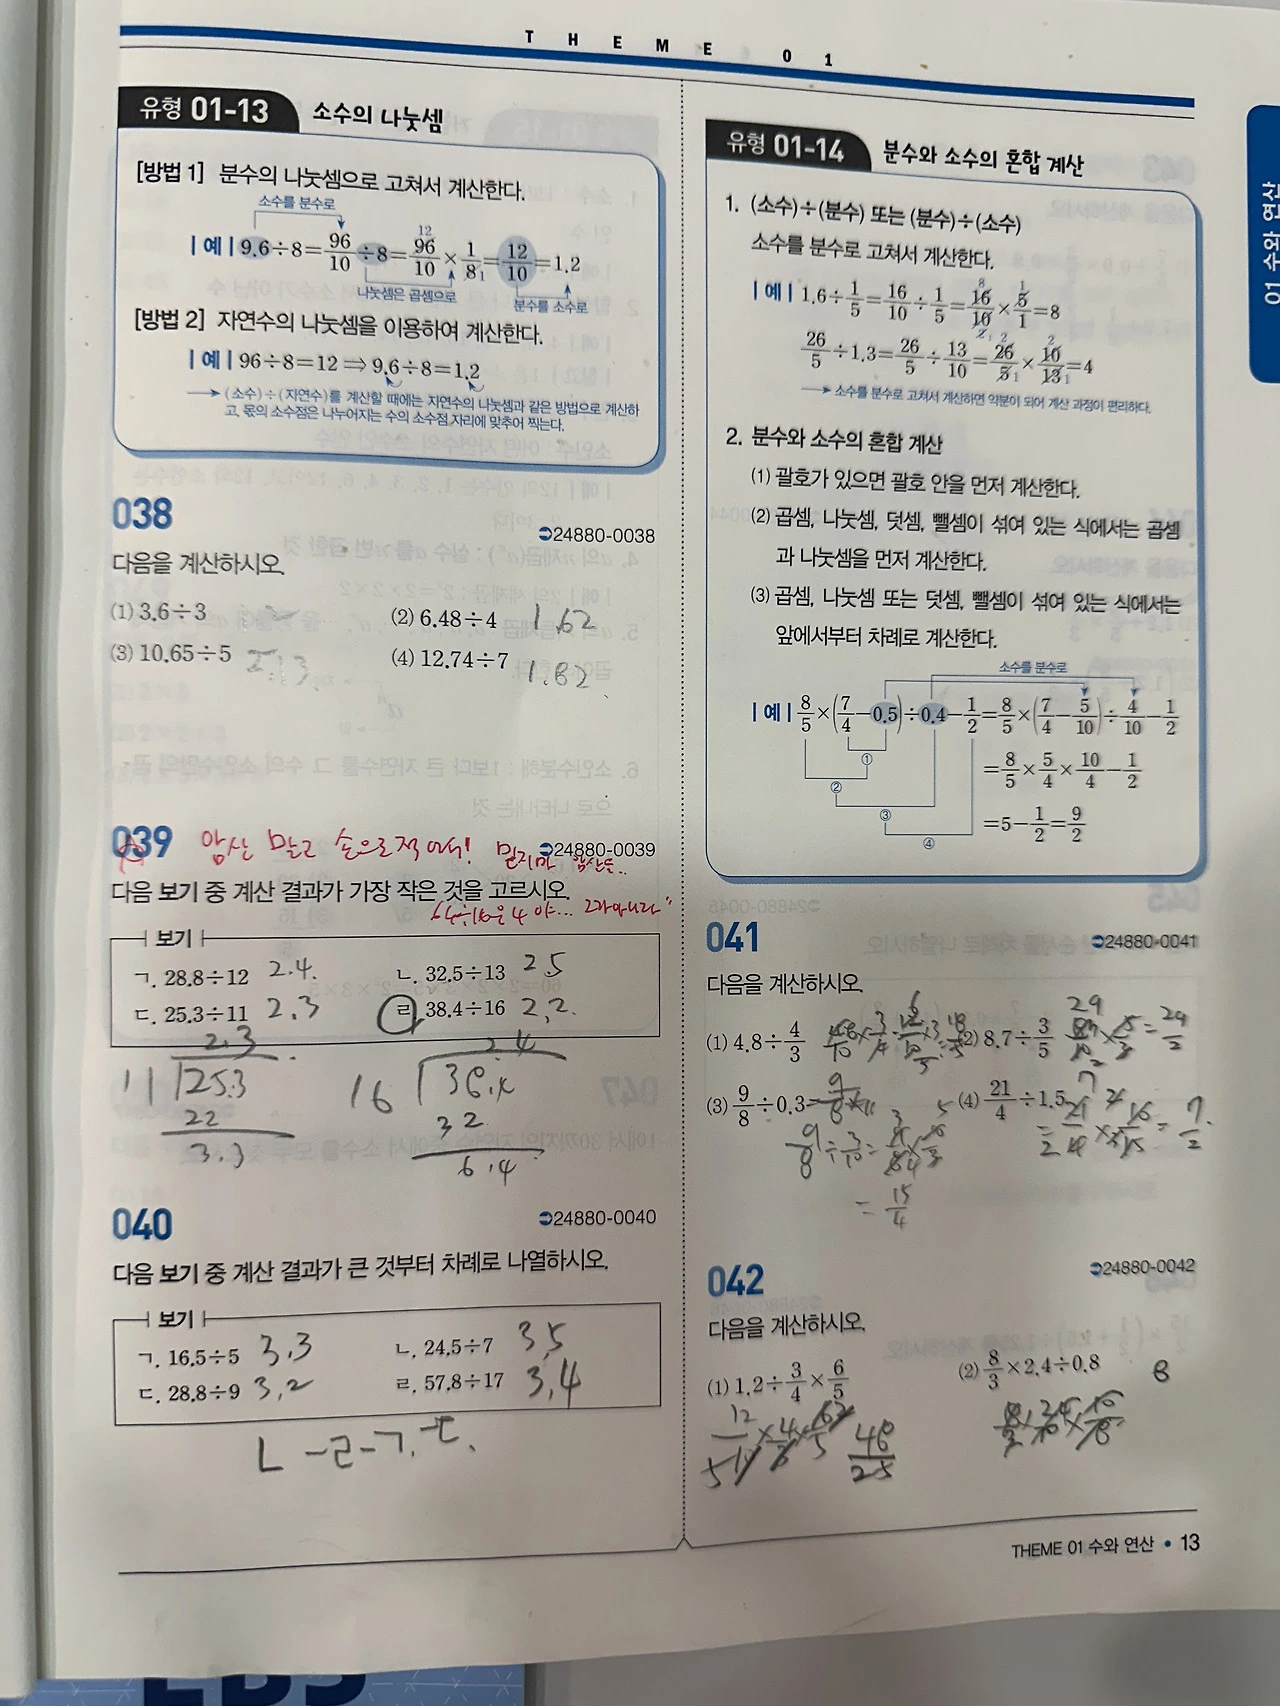 THEME 01
유형 01-13 소수의 나눗셈
[방법 1] 분수의 나눗셈으로 고쳐서 계산한다.
소수를 분수로
|예| 9.6÷8=96/10÷8=96/10×1/8=12/10=1.2
나눗셈은 곱셈으로
분수를 소수로
[방법 2] 자연수의 나눗셈을 이용하여 계산한다.
|예| 96÷8=12 ⇒ 9.6÷8=1.2
→ (소수)÷(자연수)를 계산할 때에는 자연수의 나눗셈과 같은 방법으로 계산하
고, 몫의 소수점은 나누어지는 수의 소수점 자리에 맞추어 찍는다.
038
24880-0038
다음을 계산하시오.
(1) 3.6÷3
(2) 6.48÷4 1.62
(3) 10.65÷5 2.13
(4) 12.74÷7 1.82
039
암산 말고 손으로 적어서!
24880-0039
다음 보기 중 계산 결과가 가장 작은 것을 고르시오.
보기
ㄱ. 28.8÷12 2.4
ㄴ. 32.5÷13 2.5
ㄷ. 25.3÷11 2.3
ㄹ. 38.4÷16 2.2
2.3
11 25.3
22
3.3
2.4
16 38.4
32
6.4
040
24880-0040
다음 보기 중 계산 결과가 큰 것부터 차례로 나열하시오.
보기
ㄱ. 16.5÷5 3.3
ㄴ. 24.5÷7 3.5
ㄷ. 28.8÷9 3.2
ㄹ. 57.8÷17 3.4
ㄴ-ㄹ-ㄱ-ㄷ.
유형 01-14 분수와 소수의 혼합 계산
1. (소수)÷(분수) 또는 (분수)÷(소수)
소수를 분수로 고쳐서 계산한다.
|예| 1.6÷1/5=16/10÷1/5=16/10×5/1=8
26/5÷1.3=26/5÷13/10=26/5×10/13=4
→ 소수를 분수로 고쳐서 계산하면 약분이 되어 계산 과정이 편리하다.
2. 분수와 소수의 혼합 계산
(1) 괄호가 있으면 괄호 안을 먼저 계산한다.
(2) 곱셈, 나눗셈, 덧셈, 뺄셈이 섞여 있는 식에서는 곱셈
과 나눗셈을 먼저 계산한다.
(3) 곱셈, 나눗셈 또는 덧셈, 뺄셈이 섞여 있는 식에서는
앞에서부터 차례로 계산한다.
소수를 분수로
|예| 8/5×(7/4-0.5)÷0.4-1/2=8/5×(7/4-5/10)÷4/10-1/2
①
②
③
④
=8/5×5/4×10/4-1/2
=5-1/2=9/2
041
24880-0041
다음을 계산하시오.
(1) 4.8÷4/3
(2) 8.7÷3/5 =29/2
(3) 9/8÷0.3
(4) 21/4÷1.5 =7/2
9/8÷3/10=
=15/4
042
24880-0042
다음을 계산하시오.
(1) 1.2÷3/4×6/5
(2) 8/3×2.4÷0.8 8
48/25
THEME 01 수와 연산 • 13
01 수와 연산